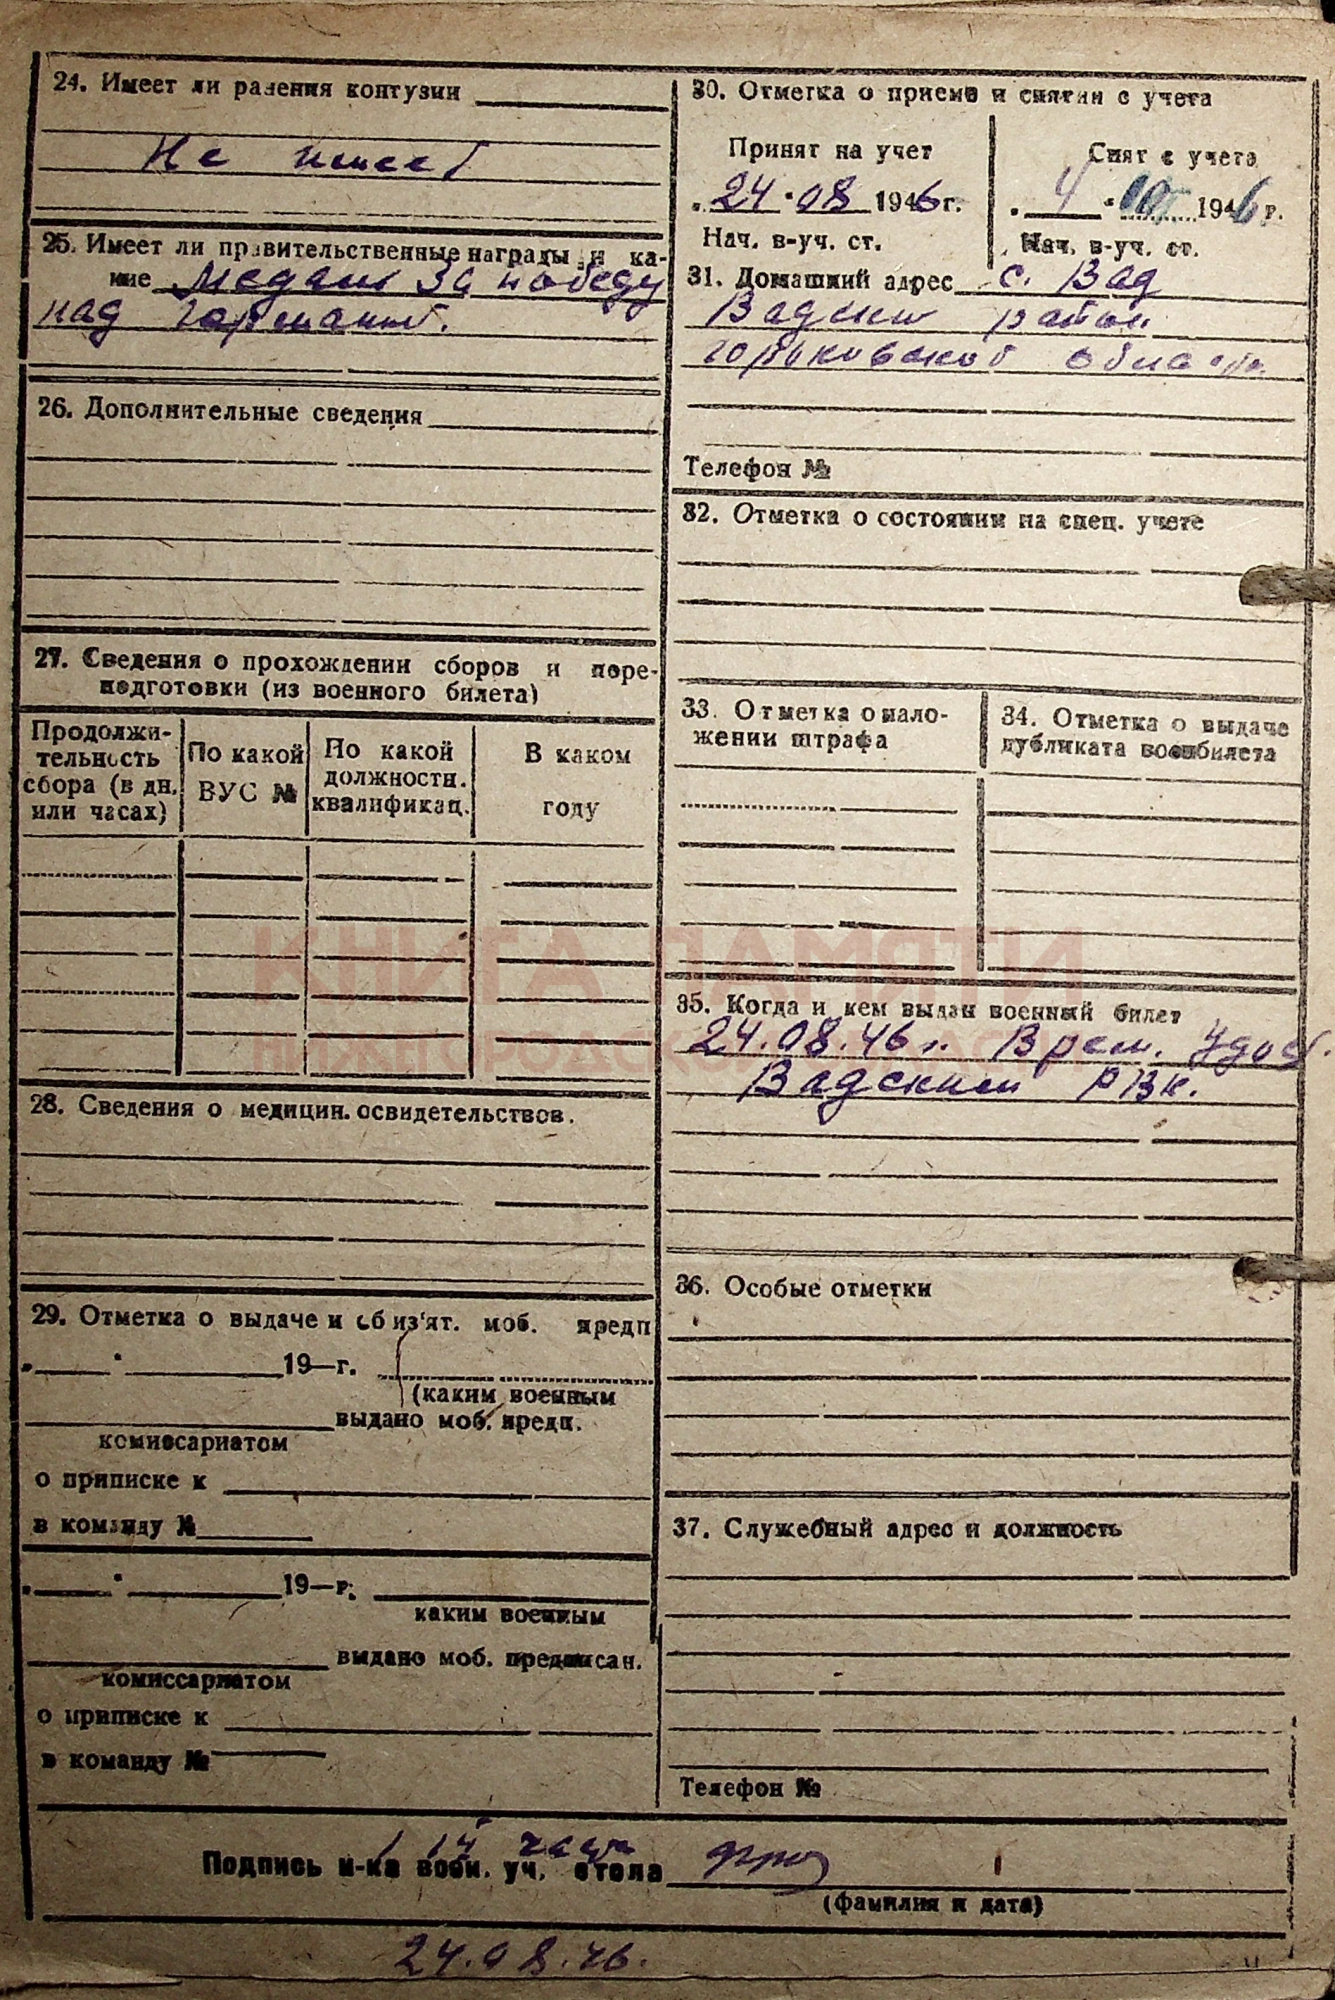 24. Имеет ли ранения контузии
Не имеет
25. Имеет ли правительственные награды и ка-
кие Медаль За победу
над Германией.
26. Дополнительные сведения
27. Сведения о прохождении сборов и пере-
подготовки (из военного билета)
Продолжи-
тельность
сбора (в дн.
или часах)
По какой
ВУС №
По какой
должности.
квалификац.
В каком
году
28. Сведения о медицин. освидетельствов.
29. Отметка о выдаче и об из'ят. моб. предп
19—г.
(каким военным
выдано моб. предп.
комиссариатом
о приписке к
в команду №
19—г.
каким военным
выдано моб. предписан.
комиссариатом
о приписке к
в команду №
30. Отметка о приеме и снятии с учета
Принят на учет
24 · 08 1946 г.
Нач. в-уч. ст.
Снят с учета
4 · 1946 г.
Нач. в-уч. ст.
31. Домашний адрес с. Вад
Вадский район
Горьковской области
Телефон №
32. Отметка о состоянии на спец. учете
33. Отметка о нало-
жении штрафа
34. Отметка о выдаче
дубликата военбилета
35. Когда и кем выдан военный билет
24.08.46 г. Врем. Удост.
Вадским РВК.
36. Особые отметки
37. Служебный адрес и должность
Телефон №
части
Подпись н-ка воен. уч. стола
(фамилия и дата)
24.08.46.
КНИГА ПАМЯТИ
НИЖЕГОРОДСКОЙ ОБЛАСТИ